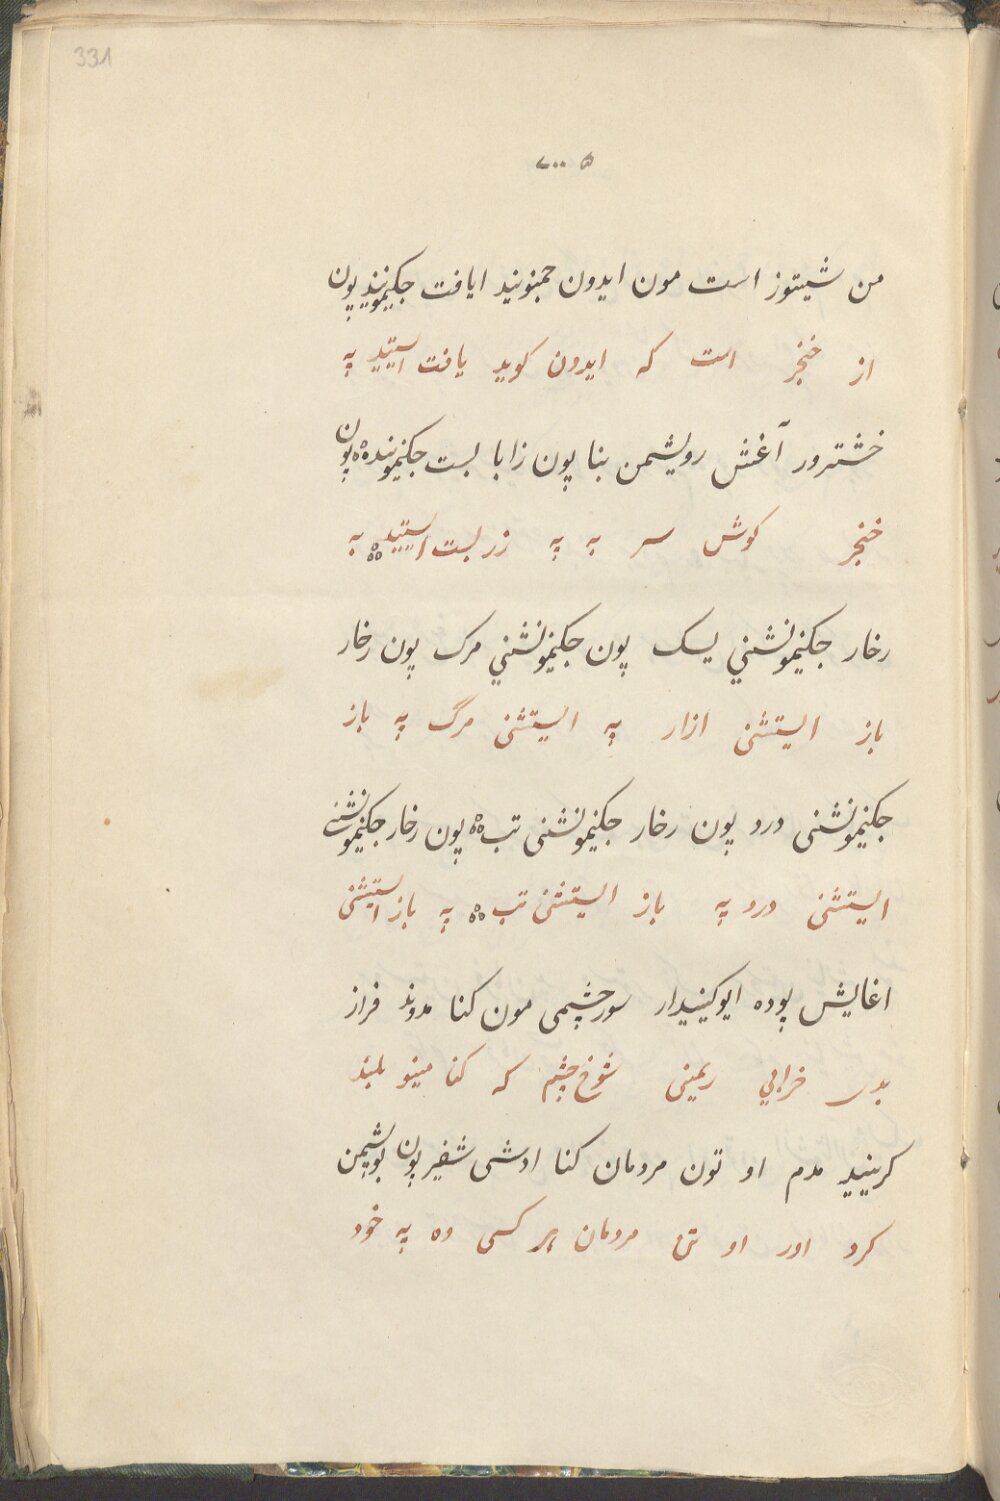 331
من شیتوز است مون ایدون جمنوید ایافت جکیمونید پون
از خنجر است که ایدون کوید یافت استید په
خشترور آغش رویشمن بنا پون زابا بست جکیمونده پون
خنجر کوش سر به په زر بست استید به
رخار جکیمونشنی یسک پون جکیمونشنی مرک پون رخار
باز ایستشنی ازار په ایستشنی مرگ په باز
جکیمونشنی درد پون رخار جکیمونشنی تب پون رخار جکیمونشنی
ایستشنی درد په باز ایستشنی تب په باز استیشنی
اغایش پوده ایوکینیدار سورچشمی مون کنا مدوند فراز
بدی خرابی ریمنی شوخ چشم که کنا مینو بلند
کرینید مدم او تون مردمان کنا ادشی شفیر پون بویشمن
کرد اور او تن مردمان هر کسی وه په خود